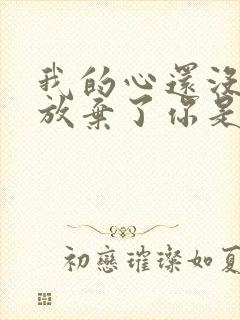 我的心還沒
放棄了你是
初戀璀璨如夏